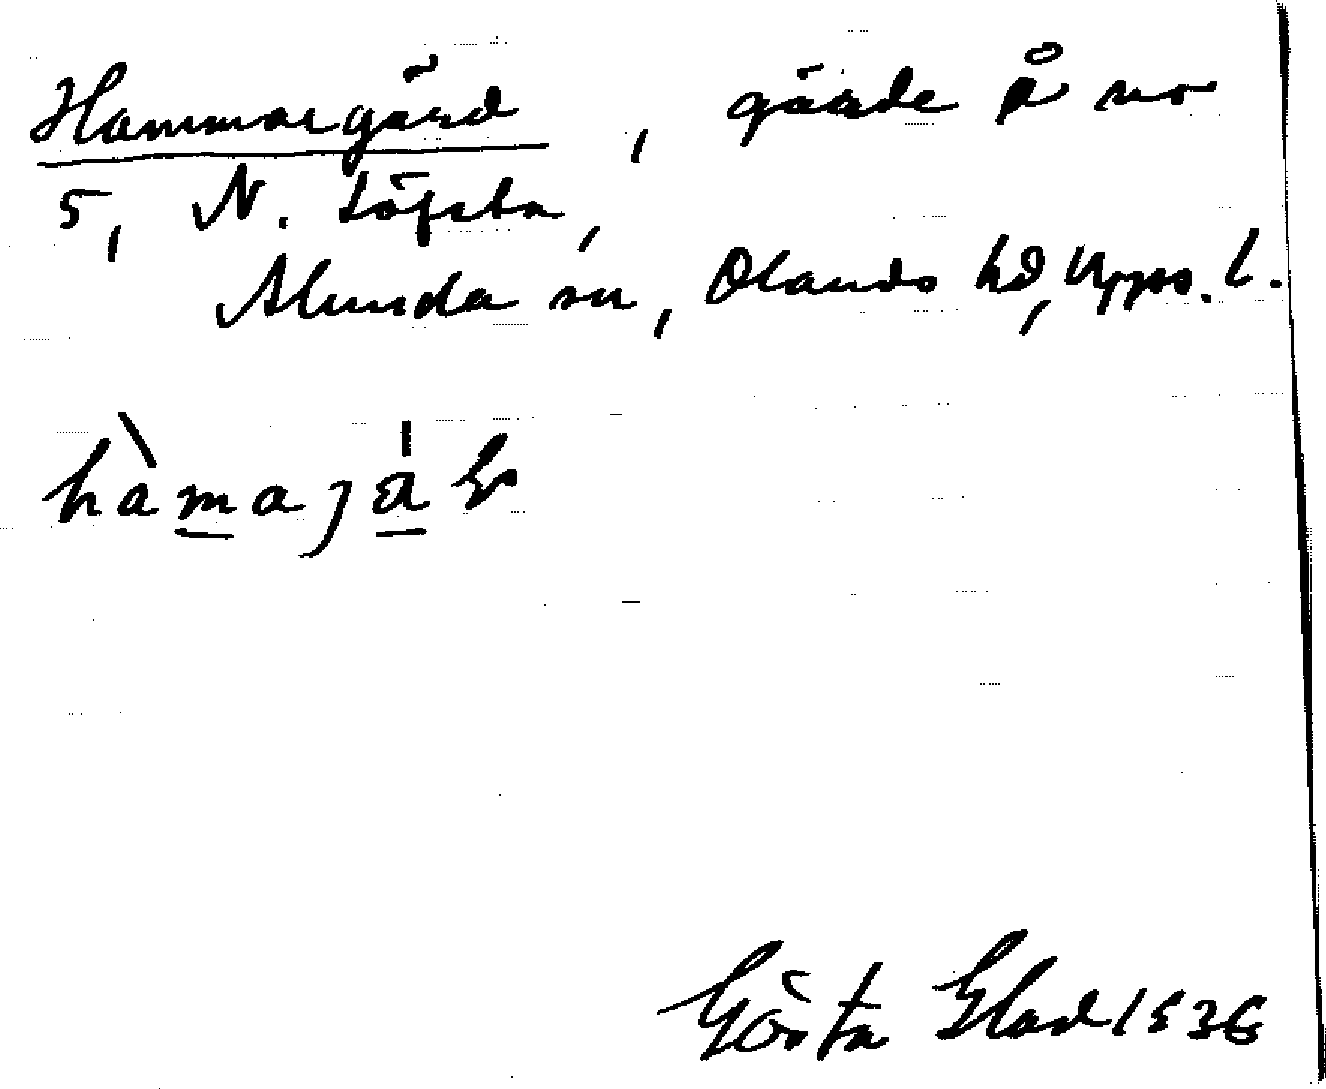 Hammargärd, gärde på nr
5, N. Löfsta,
Alunda sn, Olands hd, Upps. l.
hàmajä
Gösta Glad 1936